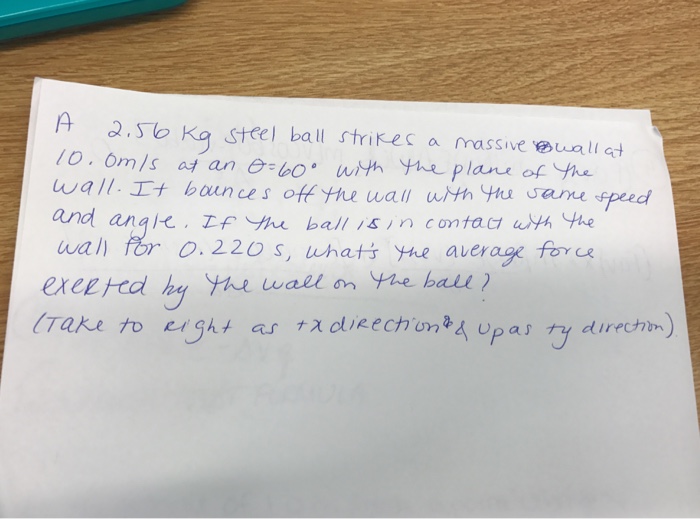 A 2.56 kg steel ball strikes a massive wall at
10.0m/s at an θ=60° with the plane of the
wall. It bounces off the wall with the same speed
and angle. If the ball is in contact with the
wall for 0.220 s, what's the average force
exerted by the wall on the ball?
(Take to right as +x direction & up as +y direction)